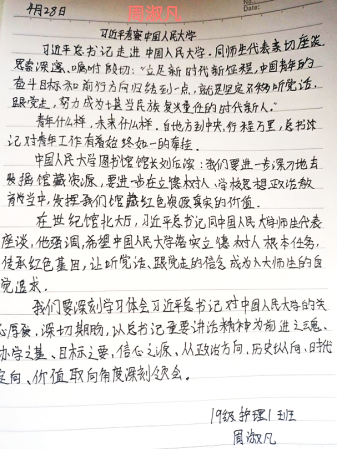 周淑凡
4月28日
No.
Date.
习近平考察中国人民大学
习近平总书记走进中国人民大学,同师生代表亲切座谈,
思索深邃、嘱咐殷切:"立足新时代新征程,中国青年的
奋斗目标和前行方向归结到一点,就是坚定不移听党话、
跟党走,努力成为堪当民族复兴重任的时代新人。"
青年什么样,未来什么样。自地方到中央,行程万里,总书记
记对青年工作有着始终如一的牵挂。
中国人民大学图书馆馆长刘后滨:我们要进一步深刻地去
发掘馆藏资源,要进一步在立德树人、学校思想政治教
育当中,发挥我们馆藏红色资源真实的价值。
在世纪馆北大厅,习近平总书记同中国人民大学师生代表
座谈,他强调,希望中国人民大学落实立德树人根本任务,
传承红色基因,让听党话、跟党走的信念成为人大师生的自
觉追求。
我们要深刻学习体会习近平总书记对中国人民大学的关
心厚爱,深切期盼,以总书记重要讲话精神为前进之魂、
办学之基、目标之要,信心之源、从政治方向,历史纵向,时代
定向、价值取向角度深刻领会。
19级护理1班
周淑凡